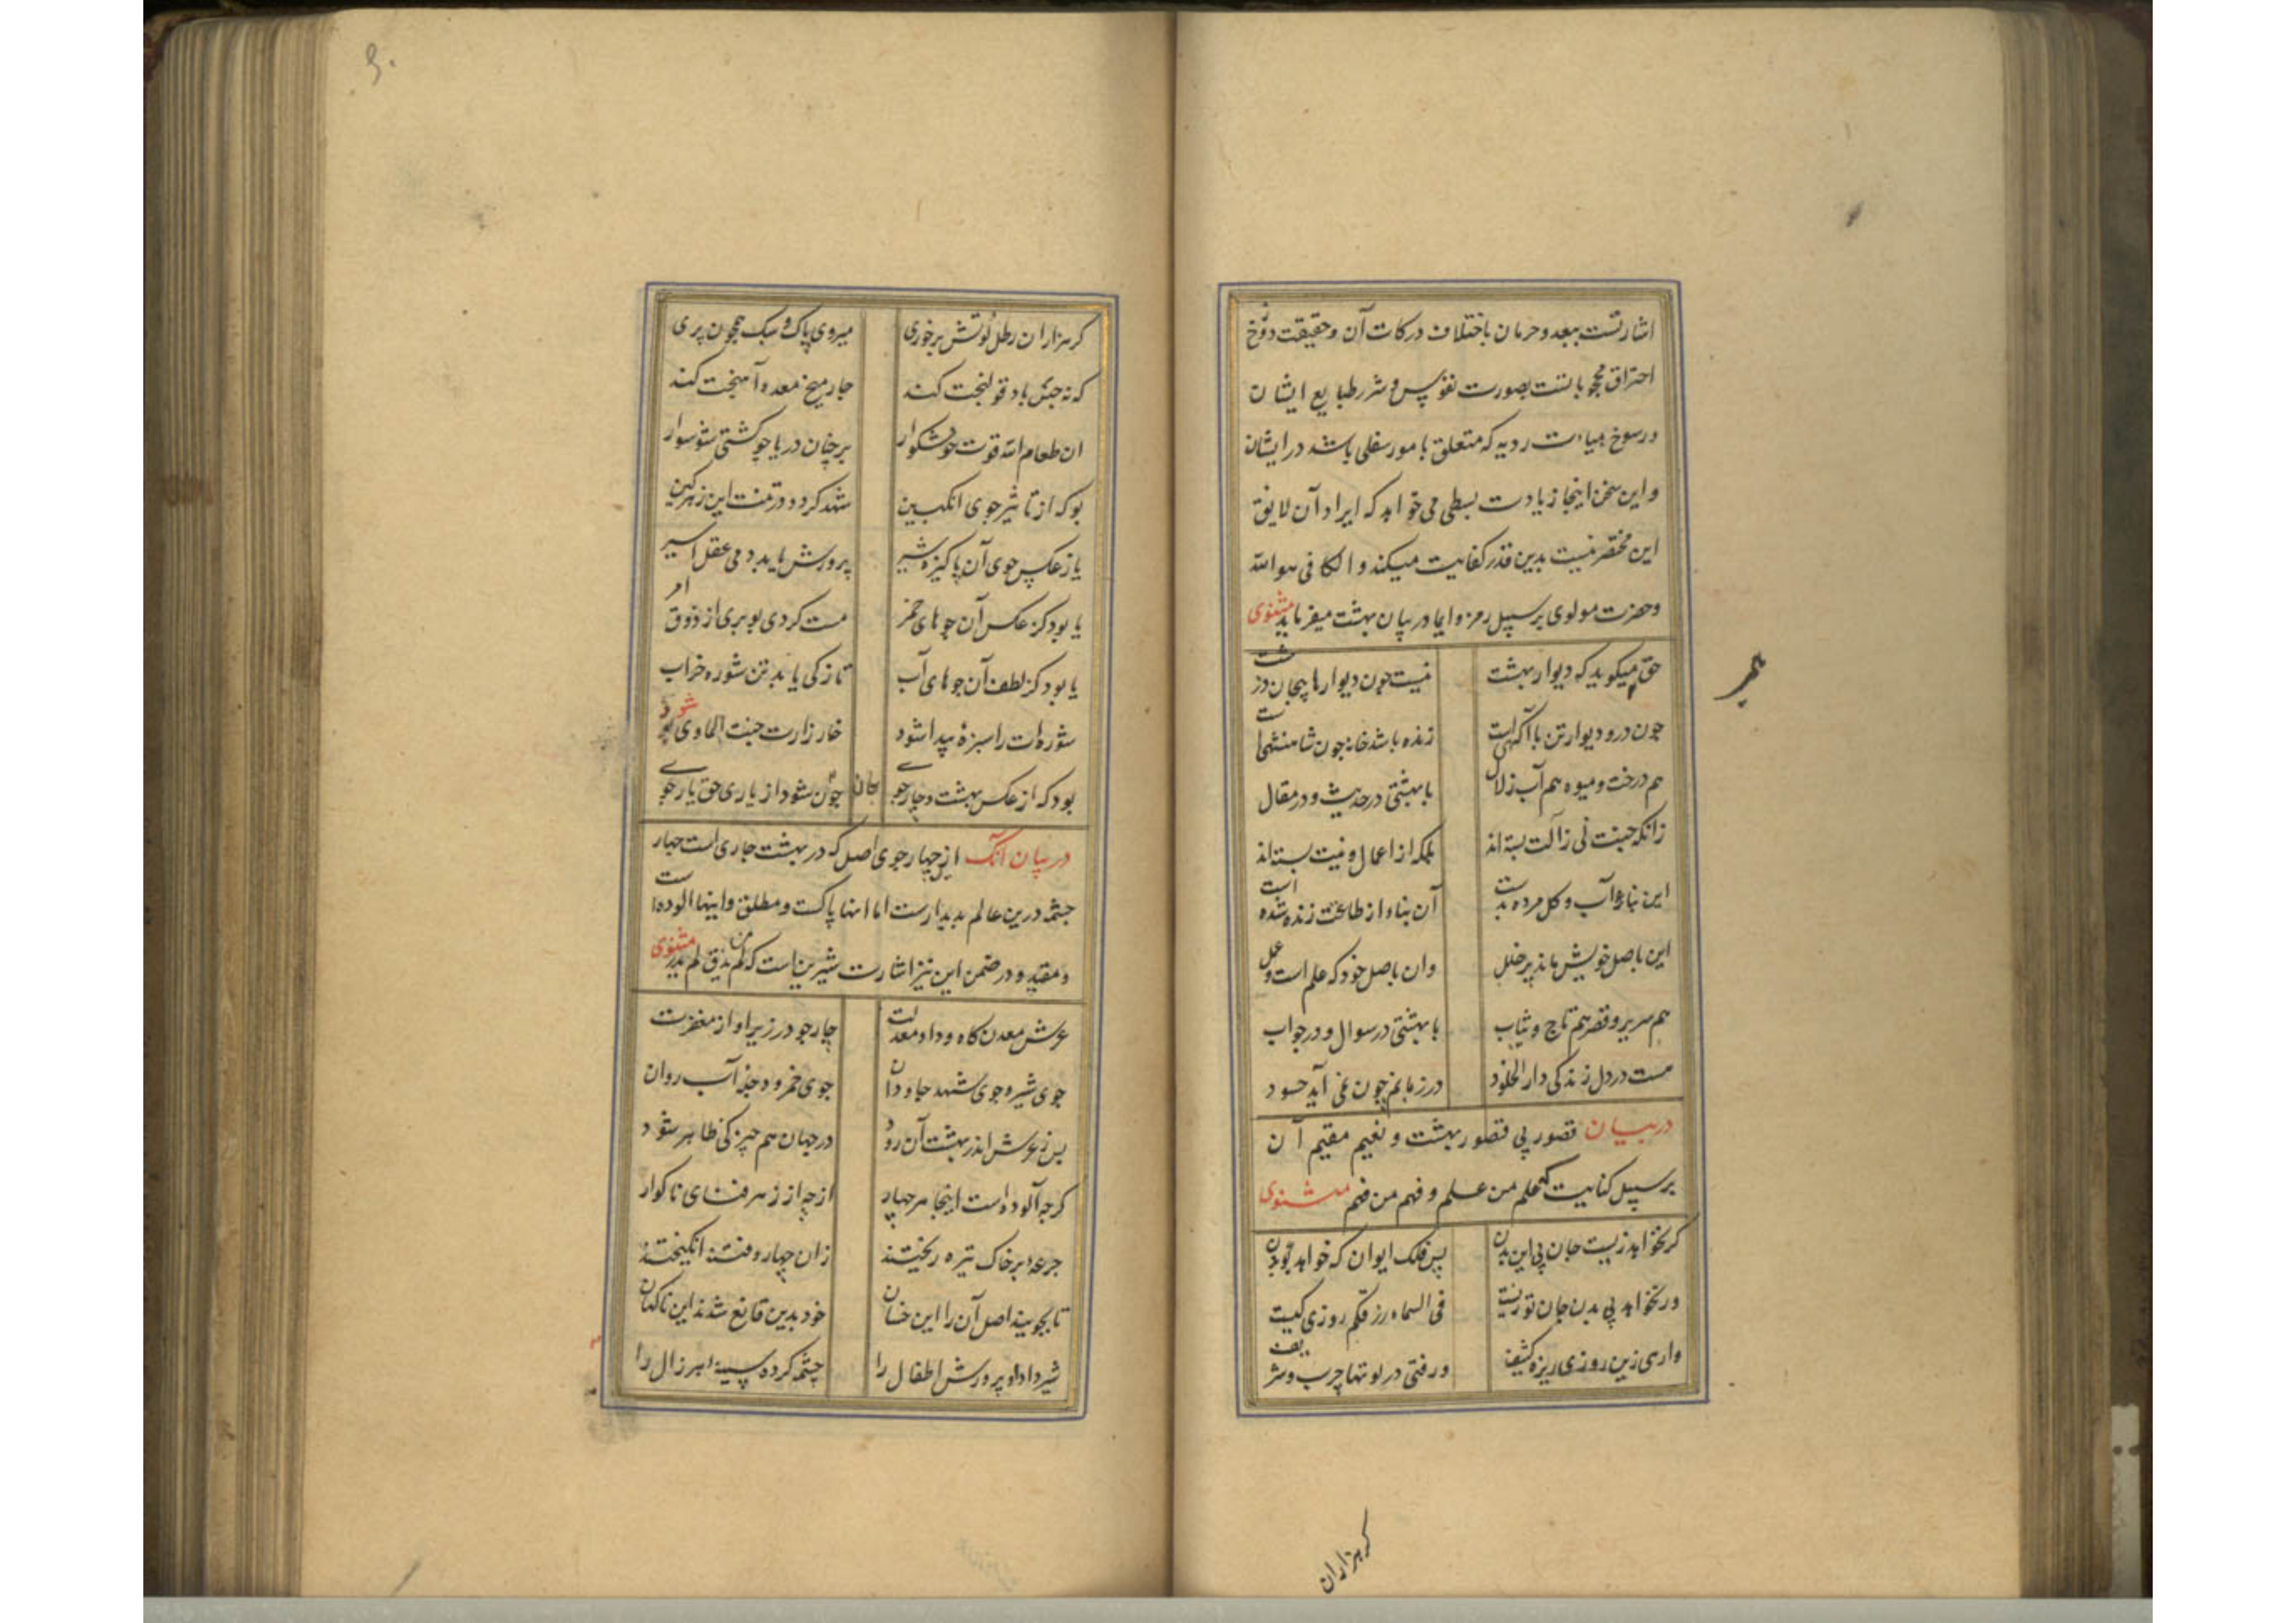 اشارتست ببعد و حرمان باختلاف درکات آن و حقیقت دوزخ
احتراق محجوبانست بصورت نفوس و شرر طبایع ایشان
و رسوخ هیات ردیه که متعلق بامور سفلی باشد در ایشان
و این سخن اینجا زیادت بسطی می خواهد که ایراد آن لایق
این مختصر نیست بدین قدر کفایت میکند و الکافی هو الله
و حضرت مولوی بر سپیل رمز و ایما در بیان بهشت میفرماید مثنوی
حق میکوید که دیوار بهشت نیست چون دیوارها بیجان و زشت
چون در و دیوار تن با آکهیست زنده باشد خانه چون شاهنشهیست
هم درخت و میوه هم آب زلال با بهشتی در حدیث و در مقال
زانکه جنت نی ز آلت بسته اند بلکه از اعمال و نیت بسته اند
این بنا ز آب و کل مرده بدست آن بنا از طاعت زنده شده است
این باصل خویش ماند پر خلل وان باصل خود که علم است و عمل
هم سریر و قصر هم تاج و ثیاب با بهشتی در سوال و در جواب
هست در دل زندکی دار الخلود در زبانم چون نمی آید چه سود
در بیان قصور بی قصور بهشت و نعیم مقیم آن
بر سپیل کنایت علم من علم و فهم من فهم مثنوی
کر نخواهد زیست جان بی این بدن پس فلک ایوان که خواهد بودن
ور نخواهد بی بدن جان تو زیست فی السماء رزقکم روزی کیست
وارهی زین روزی ریزه کثیف در فتی در لوتها چرب و شریف
کرهزاران
کر هزاران رطل لوتش بر خوری میروی پاک و سبک همچون پری
که نه حبس باد قولنجت کند چار میخ معده آهنجت کند
ان طعام الله قوت خوشکوار بر چنان دریا چو کشتی شو سوار
بو که از تاثیر جوی انکبین شهد کردد در تنت این زهر کین
یا ز عکس جوی آن پاکیزه شیر پرورش یابد دمی عقل اسیر
یا بود کز عکس آن جوهای خمر مست کردی بو بری از ذوق امر
یا بود کز لطف آن جوهای آب تازکی یابد تن شوره خراب
شوره ات را سبزۀ پیدا شود خار زارت جنت الماوی شود
بود که از عکس بهشت و چار جوے جان چون شود از یاری حق یار جوے
در بیان آنک از چهار جوی اصل که در بهشت جاری است چهار
چشمه درین عالم پدیدارست اما انها پاکست و مطلق و اینها الوده است
و مقید و در ضمن این نیز اشارت شیرین است که من لم یذق لم یدر مثنوی
عرش معدن کاه و داد و معدلت چار جو در زیر او از مغفرت
جوی شیر و جوی شهد جاودان جوی خمر و دجلۀ آب روان
پس ز عرش اندر بهشت آن رود در جهان هم چیزکی ظاهر شود
کرچه آلوده است اینجا هر چهار از چه از زهر فنای ناکوار
جرعۀ بر خاک تیره ریختند زان چهار و فتنۀ انکیختند
تا بجویند اصل آن را این خسان خود بدین قانع شدند این ناکسان
شیر داد او پرورش اطفال را چشمه کرده سینۀ هر زال را